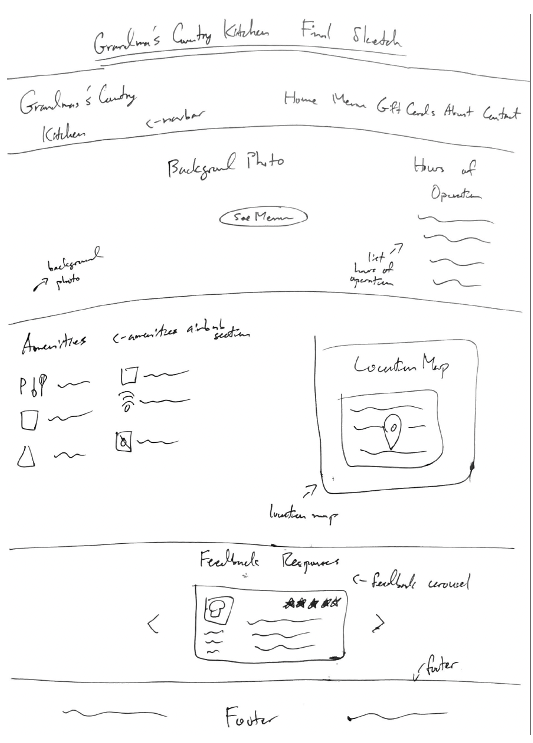 Grandma's Country Kitchen Final Sketch
Grandma's Country
Kitchen
<-navbar
Home Menu Gift Cards About Contact
Background Photo
See Menu
Hours of
Operation
background
photo
list
hours of
operation
Amenities
<-amenities airbnb
section
Location Map
location map
Feedback Responses
<-feedback carousel
<
>
footer
Footer